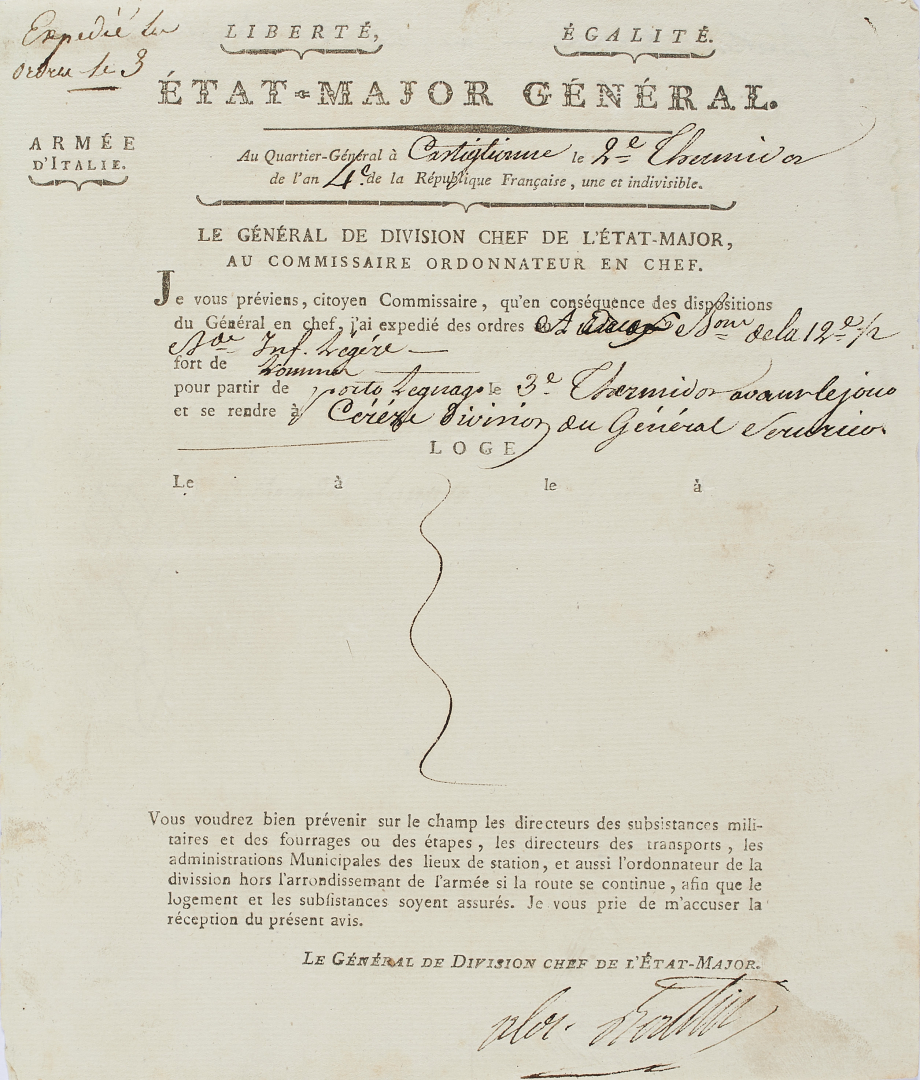 Expedié les
ordres le 3
LIBERTÉ, ÉGALITÉ.
ÉTAT-MAJOR GÉNÉRAL.
ARMÉE
D'ITALIE.
Au Quartier-Général à Castiglionne le 2e Thermidor
de l'an 4e. de la République Française, une et indivisible.
LE GÉNÉRAL DE DIVISION CHEF DE L'ÉTAT-MAJOR,
AU COMMISSAIRE ORDONNATEUR EN CHEF.
Je vous préviens, citoyen Commissaire, qu'en conséquence des dispositions
du Général en chef, j'ai expedié des ordres Bons de la 12e 1/2
Bde Inf. Légére
fort de hommes
pour partir de porto Legnago le 3e Thermidor avant le jour
et se rendre à Céréze Division du Général Serurier
LOGE
Le à le à
Vous voudrez bien prévenir sur le champ les directeurs des subsistances mili-
taires et des fourrages ou des étapes, les directeurs des transports, les
administrations Municipales des lieux de station, et aussi l'ordonnateur de la
division hors l'arrondissement de l'armée si la route se continue, afin que le
logement et les subſistances soyent assurés. Je vous prie de m'accuser la
réception du présent avis.
LE GÉNÉRAL DE DIVISION CHEF DE L'ÉTAT-MAJOR.
alex. Berthier